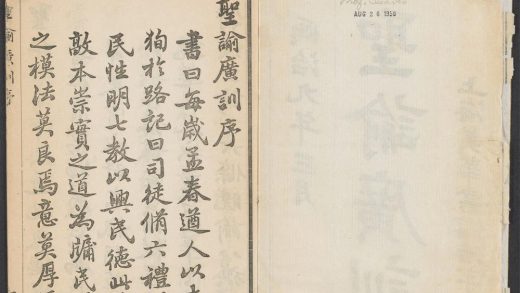 AUG 26 1950
聖諭廣訓
聖諭廣訓序
書曰每歲孟春遒人以
狥於路記曰司徒脩六禮
民性明七教以興民德此
敦本崇實之道為牖民
之模法莫良焉意莫厚
聖諭廣訓序